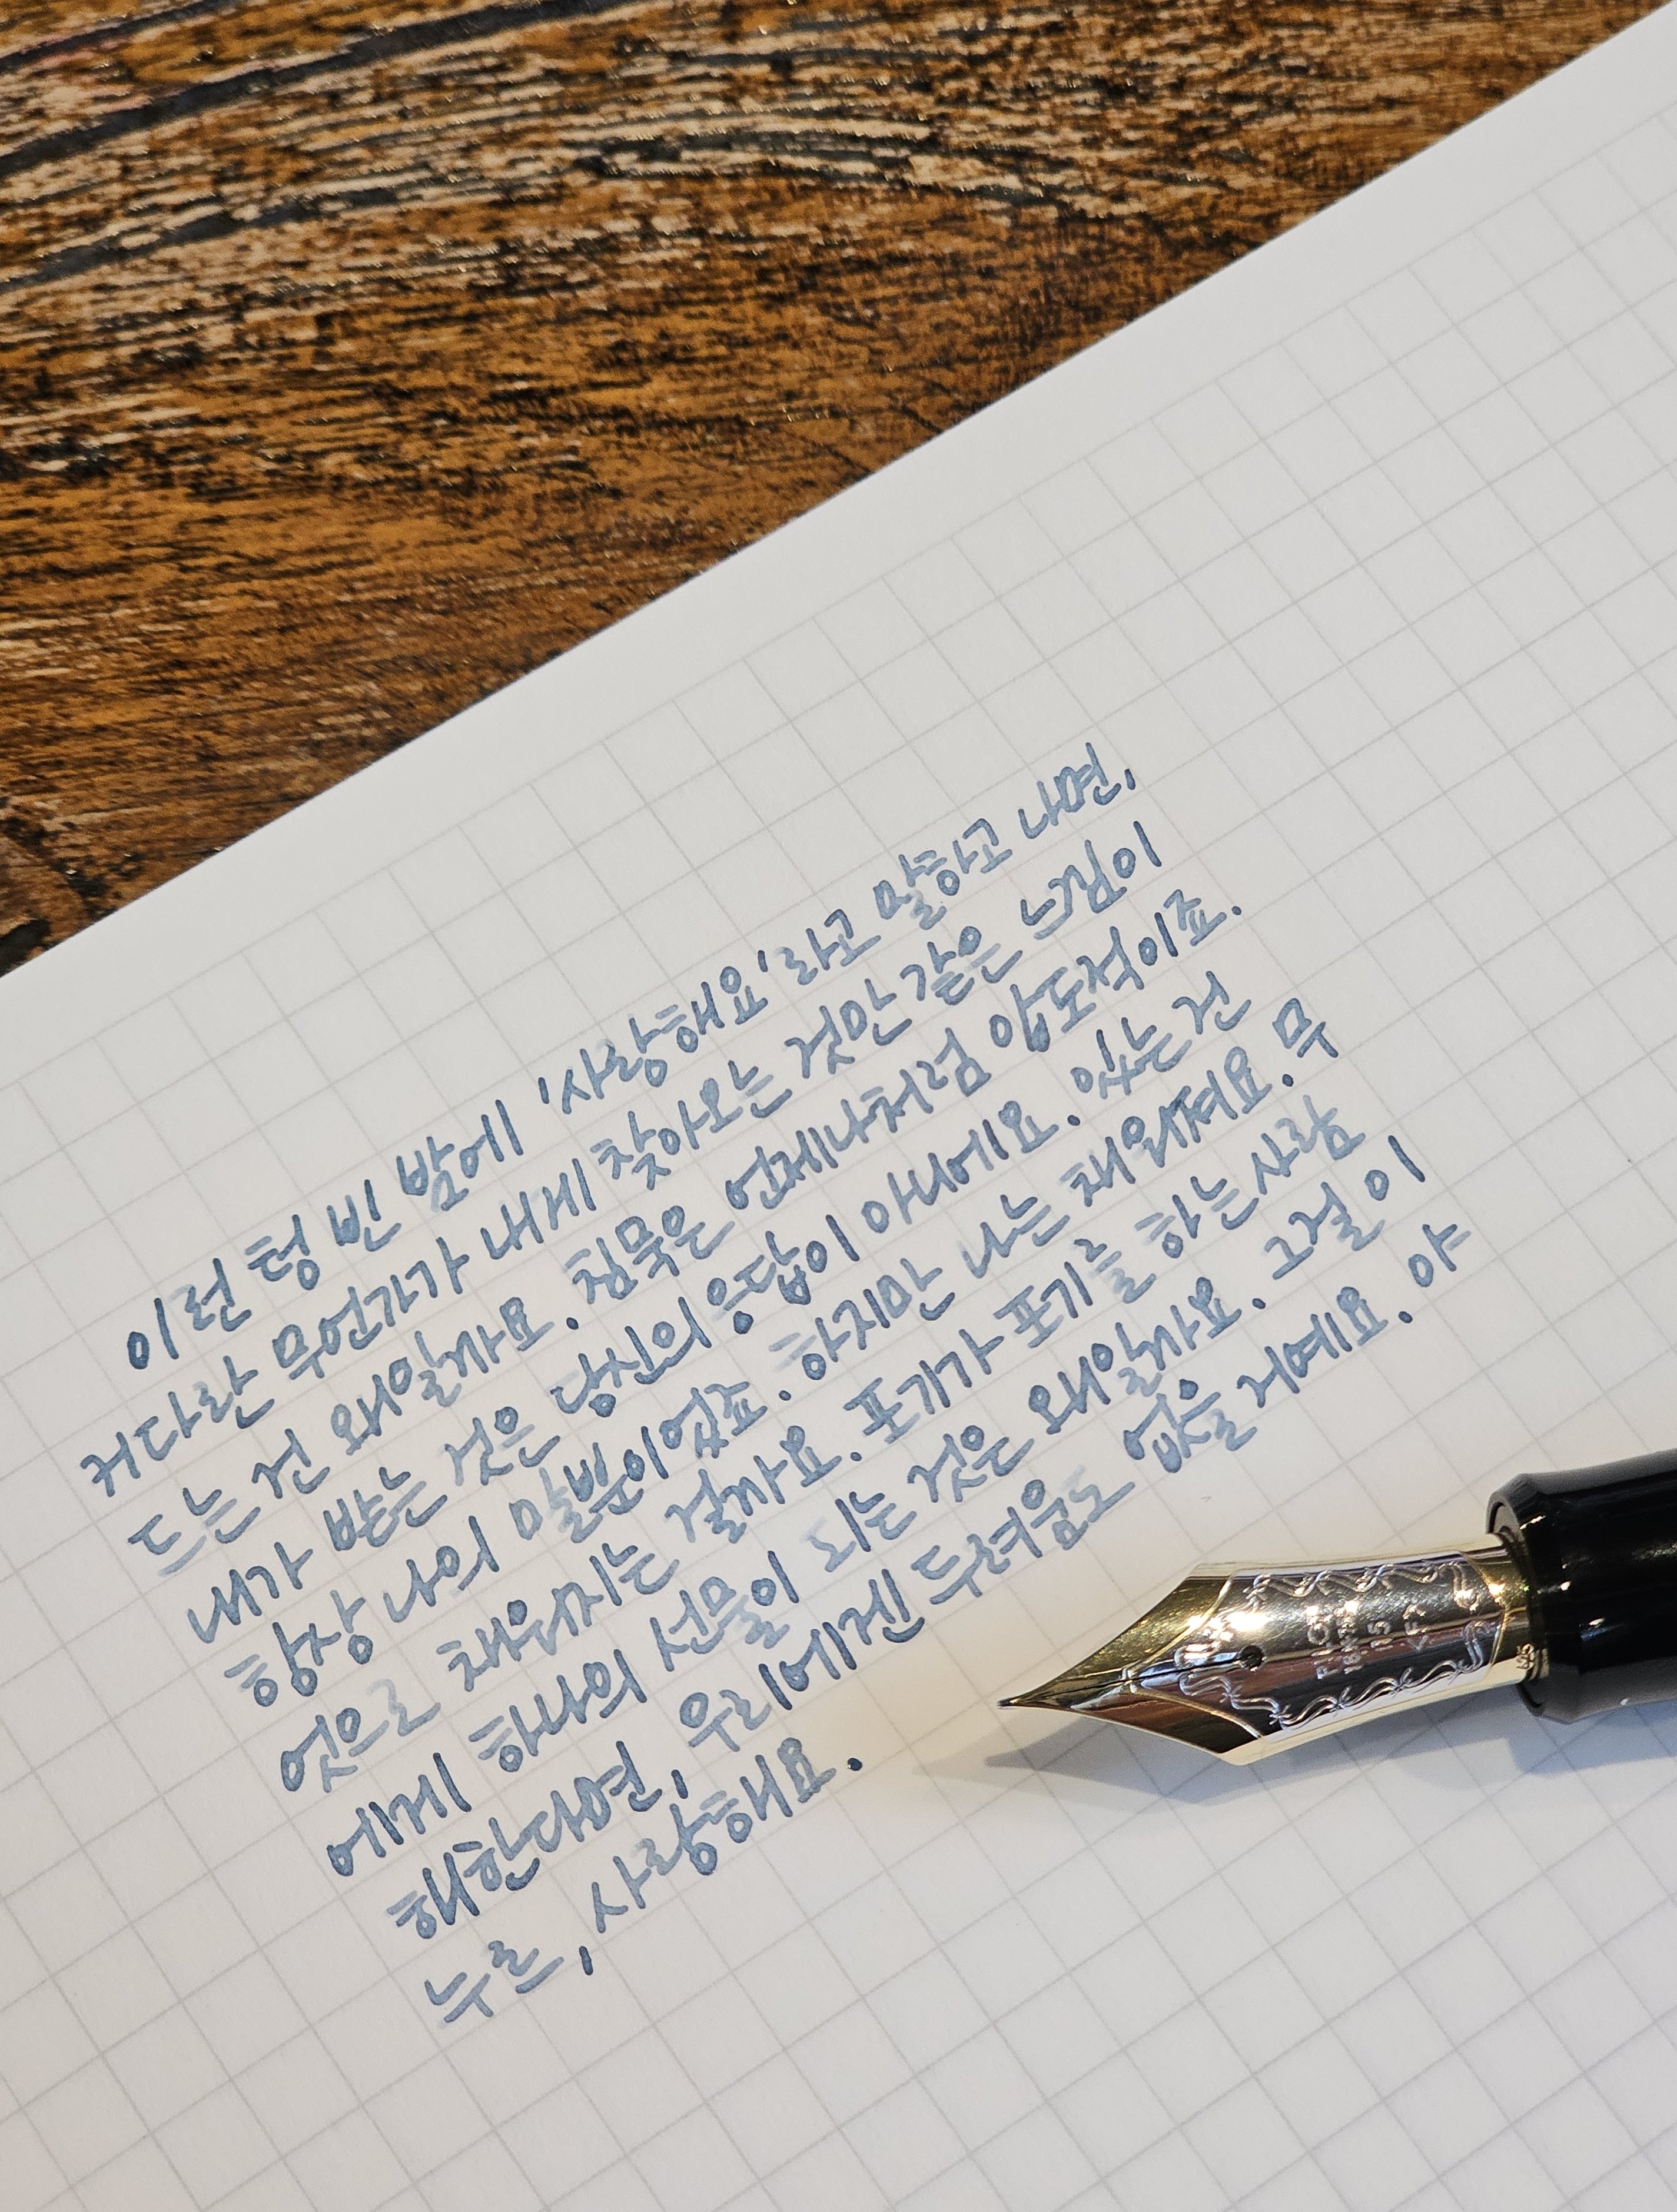 이런 텅 빈 밤에 '사랑해요'라고 말하고 나면,
커다란 무언가가 내게 찾아오는 것만 같은 느낌이
드는 건 왜일까요. 침묵은 언제나처럼 압도적이죠.
내가 받는 것은 당신의 응답이 아니에요. 있는 건
항상 나의 말뿐이었죠. 하지만 나는 채워져요. 무
엇으로 채워지는 걸까요. 포기가 포기를 하는 사람
에게 하나의 선물이 되는 것은 왜일까요. 그걸 이
해한다면, 우리에겐 두려움도 없을 거예요. 야
누르, 사랑해요.
PILOT
18K-750
15
&lt;F&gt;